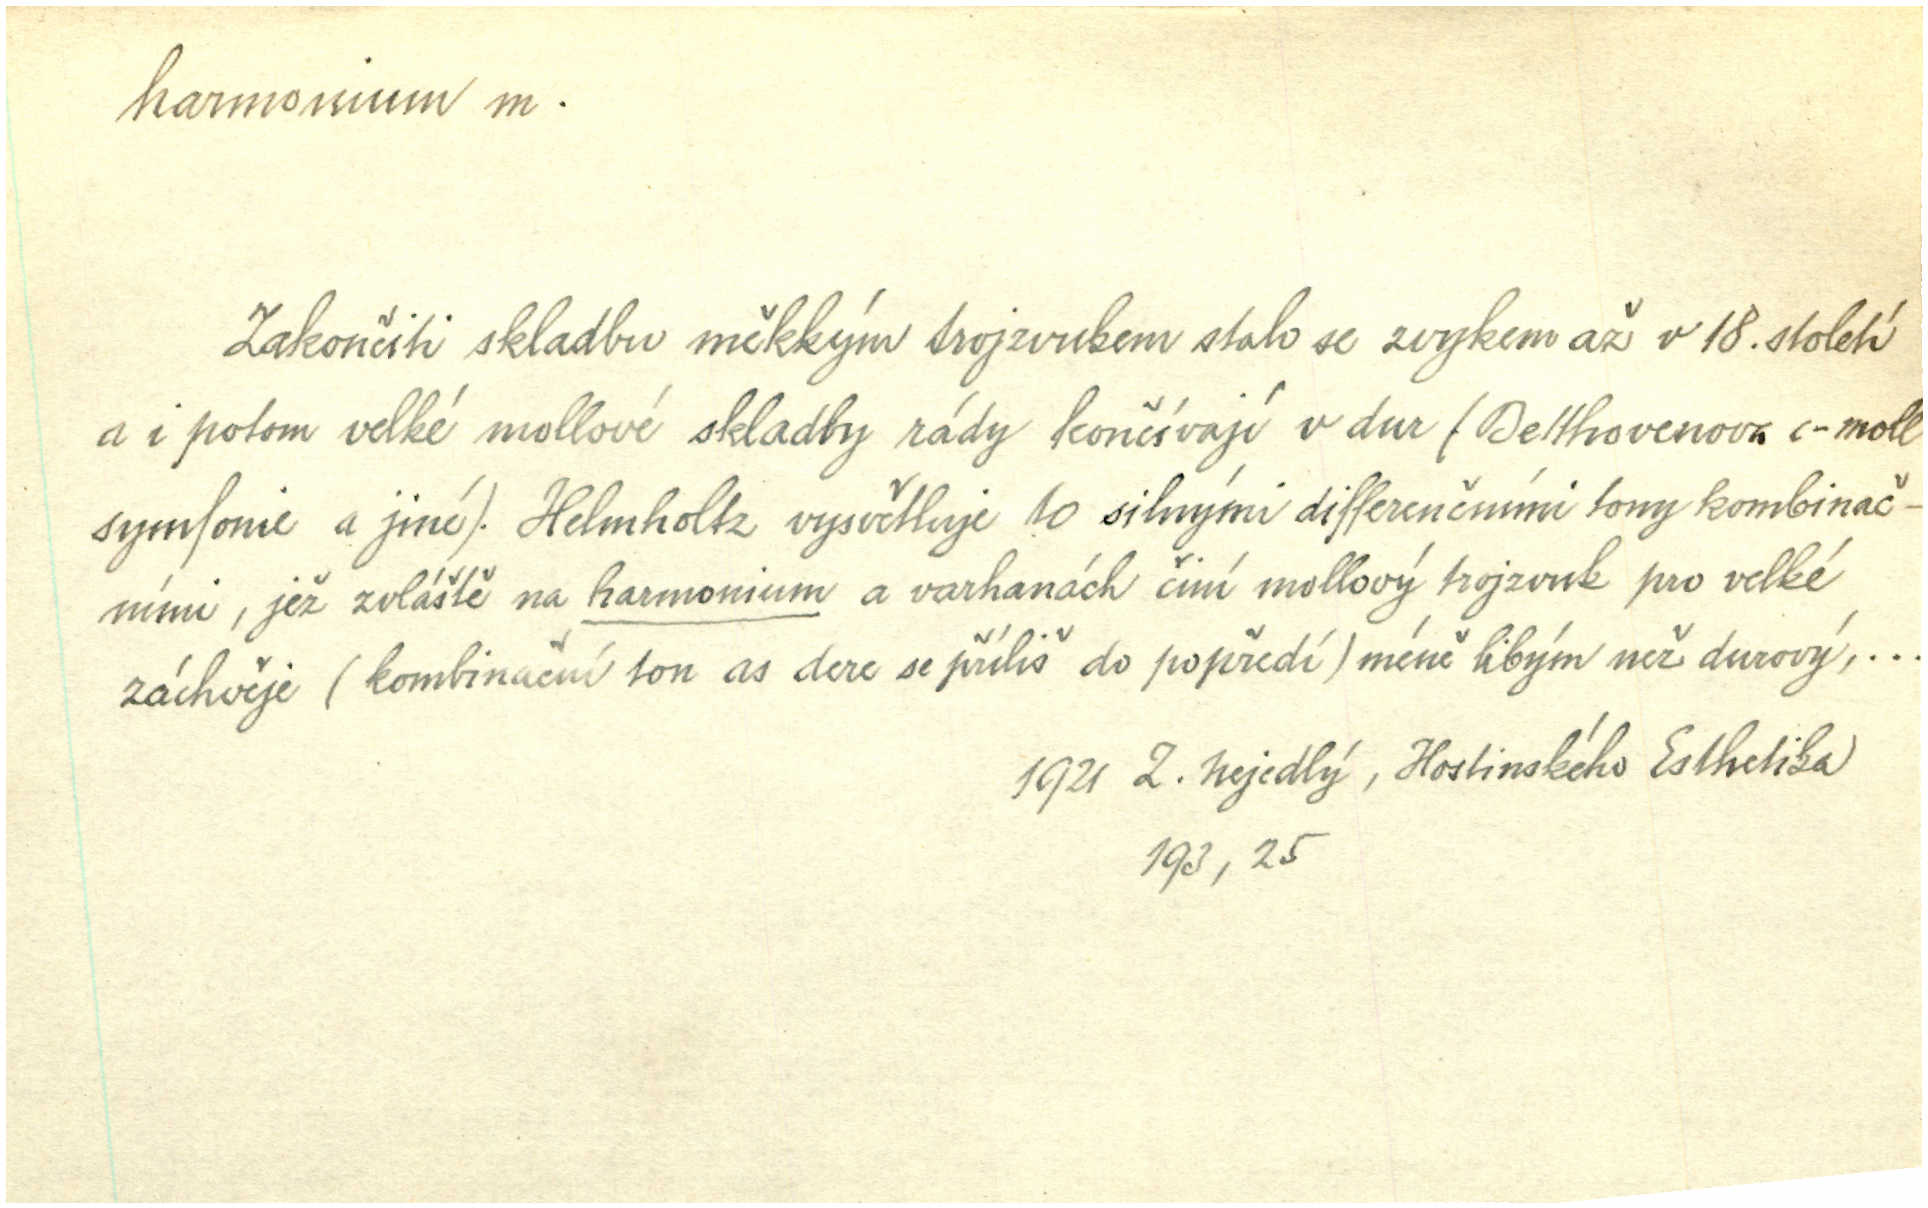 harmonium m.
Zakončiti skladbu měkkým trojzvukem stalo se zvykem až v 18. století
a i potom velké mollové skladby rády končívají v dur (Beethovenova c-moll
symfonie a jiné). Helmholtz vysvětluje to silnými differenčními tony kombinač-
ními, jež zvláště na harmonium a varhanách činí mollový trojzvuk pro velké
záchvěje (kombinační ton as dere se příliš do popředí) méně libým než durový,...
1921 Z. Nejedlý, Hostinského Esthetika
193, 25